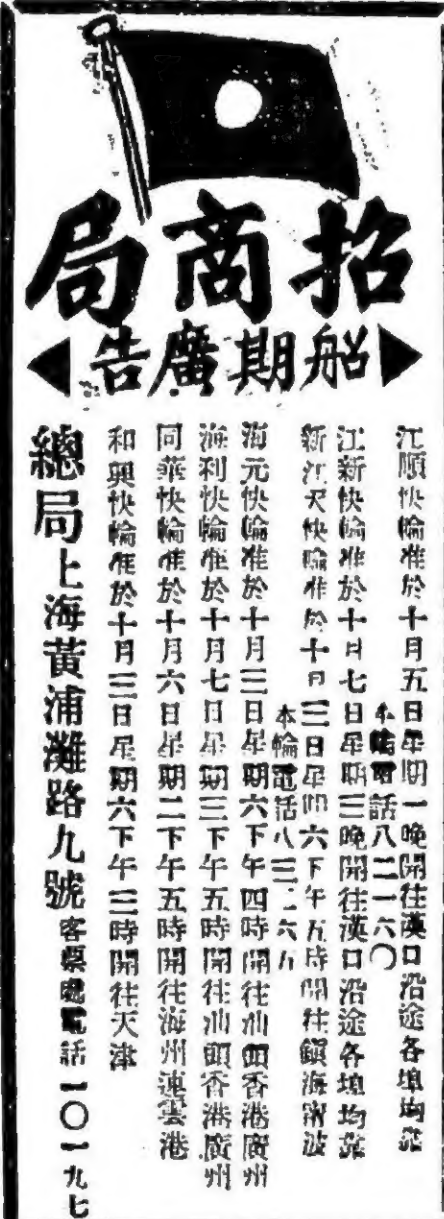 招商局
船期廣告
江順快輪准於十月五日星期一晚開往漢口沿途各埠均靠
本輪電話八二一六〇
江新快輪准於十月七日星期三晚開往漢口沿途各埠均靠
新江天快輪准於十月三日星期六下午五時開往鎮海甯波
本輪電話八三二六五
海元快輪准於十月三日星期六下午四時開往汕頭香港廣州
海利快輪准於十月七日星期三下午五時開往汕頭香港廣州
同華快輪准於十月六日星期二下午五時開往海州連雲港
和興快輪准於十月三日星期六下午三時開往天津
總局上海黃浦灘路九號客票處電話一〇一九七